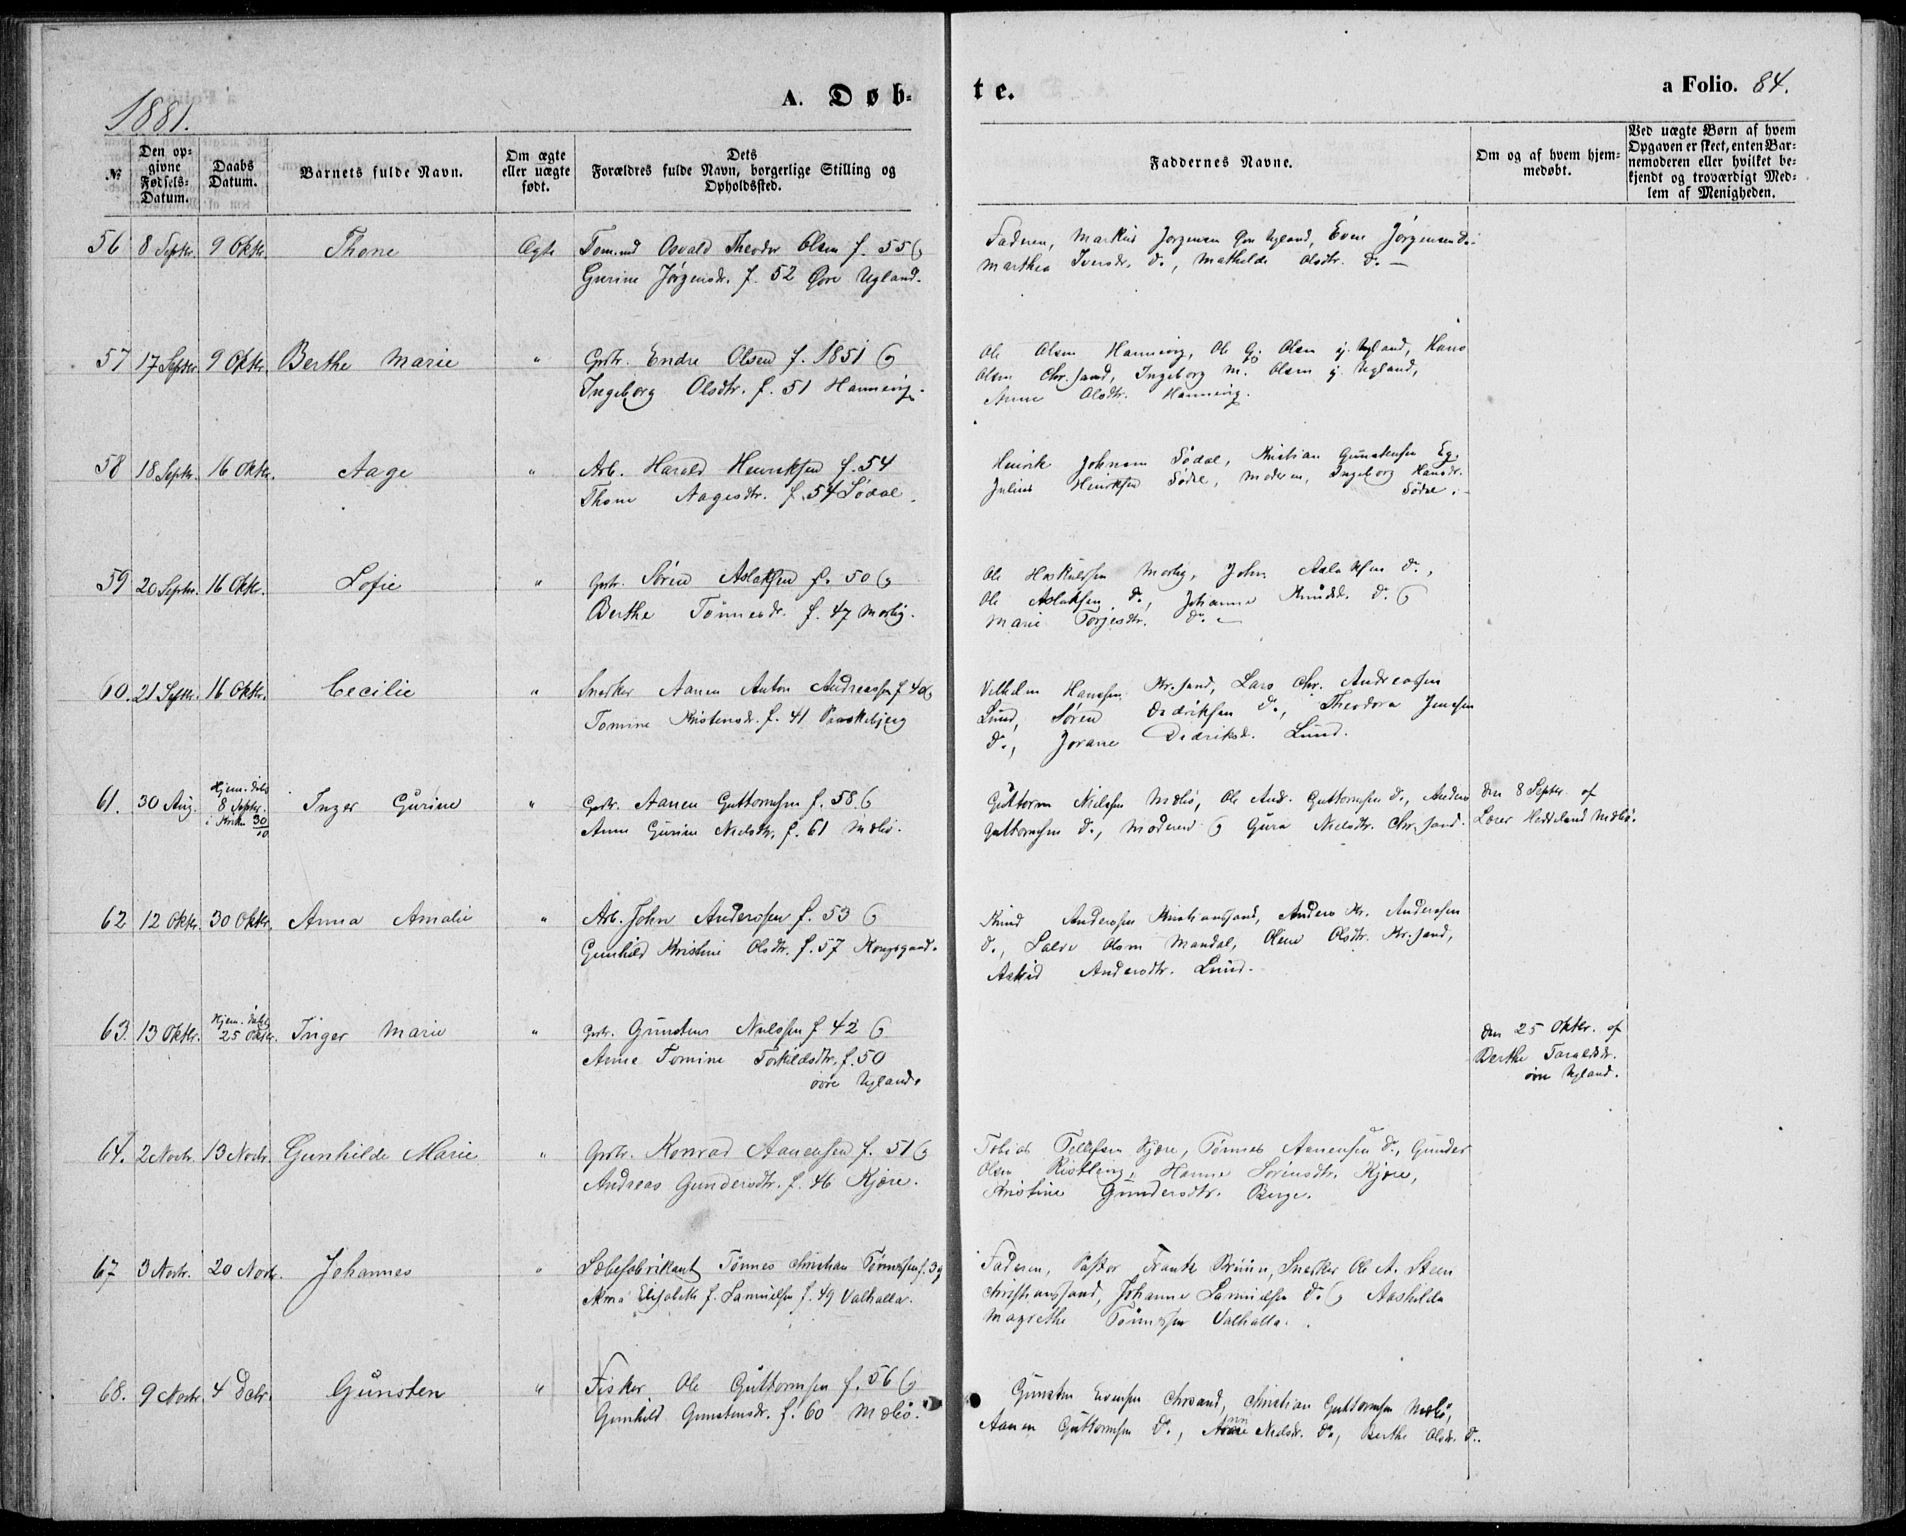 1881.
A. Døb-
te.
a Folio. 84.
№
Den op-
givne
Fødsels-
Datum.
Daabs
Datum.
Barnets fulde Navn.
Om ægte
eller uægte
født.
Dets
Forældres fulde Navn, borgerlige Stilling og
Opholdssted.
Faddernes Navne.
Om og af hvem hjem-
medøbt.
Ved uægte Børn af hvem
Opgaven er skeet, enten Bar-
nemoderen eller hvilket be-
kjendt og troværdigt Med-
lem af Menigheden.
56 8 Septr. 9 Oktr. Thone Ægte Tomand Osvald Theodor Olsen f. 55 &
Gurine Jørgensdr. f. 52 Øvre Ugland.
Faderen, Markus Jørgensen Øvre Ugland, Even Jørgensen Do.
Marthea Iversdr. Do, Mathilde Olsdtr. Do. —
57 17 Septr. 9 Oktr. Berthe Marie " Gpstr. Endre Olsen f. 1851 &
Ingeborg Olsdtr. f. 51 Hannevig.
Ole Olsen Hannevig, Ole Gj. Olsen y. Ugland, Hans
Olsen Chr.sand, Ingeborg M. Olsen y. Ugland,
Anne Olsdtr. Hannevig.
58 18 Septr. 16 Oktr. Aage " Arb. Harald Henriksen f. 54
Thone Aagesdtr. f. 54 Sødal.
Henrik Johnsen Sødal, Kristian Gunstensen Eg,
Julius Henriksen Sødal, Moderen, Ingeborg Hansdr.
Sødal.
59 20 Septr. 16 Oktr. Sofie " Gpstr. Søren Aslaksen f. 50 &
Berthe Tønnesdr. f. 47 Moslig.
Ole Moslig, John Aslaksen Do,
Ole Aslaksen Do, Johanne Knudsd. Do &
Marie Torjesdtr. Do. —
60. 21 Septr. 16 Oktr. Cecilie " Snerker Aanen Anton Andreassen f. 40 &
Tomine Kristensdr. f. 41
Vilhelm Hanssen Kr.sand, Lars Chr. Andreassen
Lund, Søren Didriksen Do, Theodora Jenssen
Do, Jorane Didriksd. Lund.
61. 30 Aug. Hjem. døbt
8 Septr.
i Kirke 30/10 Inger Gurine " Gpstr. Aanen Guttormsen f. 58 &
Anne Gurine Nielsdtr. f. 61 Mæbø.
Guttorm Nielsen Mæbø, Ole And. Guttormsen Do, Anders
Guttormsen Do, Moderen & Guro Nielsdtr. Chr.sand.
den 8 Septr. af
Lærer Heddeland Mæbø.
62 12 Oktr. 30 Oktr. Anna Amalie " Arb. John Anderssen f. 53 &
Gunhild Kristine Olsdtr. f. 57 Kongsgaard.
Knud Anderssen Kristianssand, Anders Kr. Anderssen
Do, Salve Olsen Mandal, Olene Olsdtr. Kr.sand,
Astrid Andersdtr. Lund.
63. 13 Oktr. Hjem. døbt
25 Oktr. Inger Marie " Gpstr. Gunsten Nielssen f. 42 &
Anne Tomine Torkildsdtr. f. 50
øvre Ugland.
den 25 Oktr. af
Berthe Taraldsdr.
øvre Ugland.
64. 2 Novbr. 13 Novbr. Gunhilde Marie " Gpstr. Konrad Aanensen f. 51 &
Andreas Gundersdtr. f. 46 Kjære.
Tobias Tellefsen Kjære, Tønnes Aanensen Do, Gunder
Olsen Ristling, Hanne Sørensdtr. Kjære,
Kristine Gundersdtr. Berge.
67 3 Novbr. 20 Novbr. Johannes " Sæbefabrikant Tønnes Christian Tønnessen f. 39
Anna Elisabeth f. Samuelsen f. 49 Valhalla.
Faderen, Pastor Frantz Bruun, Snerker Ole A. Steen
Christianssand, Johanne Samuelsen Do & Aashilda
Magrethe Tønnessen Valhalla.
68. 9 Novbr. 4 Decbr. Gunsten " Fisker Ole Guttormsen f. 56 &
Gunhild Gunstensdr. f. 60 Mæbø.
Gunsten Evensen Chrsand, Christian Guttormsen Mæbø,
Aanen Guttormsen Do, Anne Nielsdr. Do, Berthe Olsdr. Do.